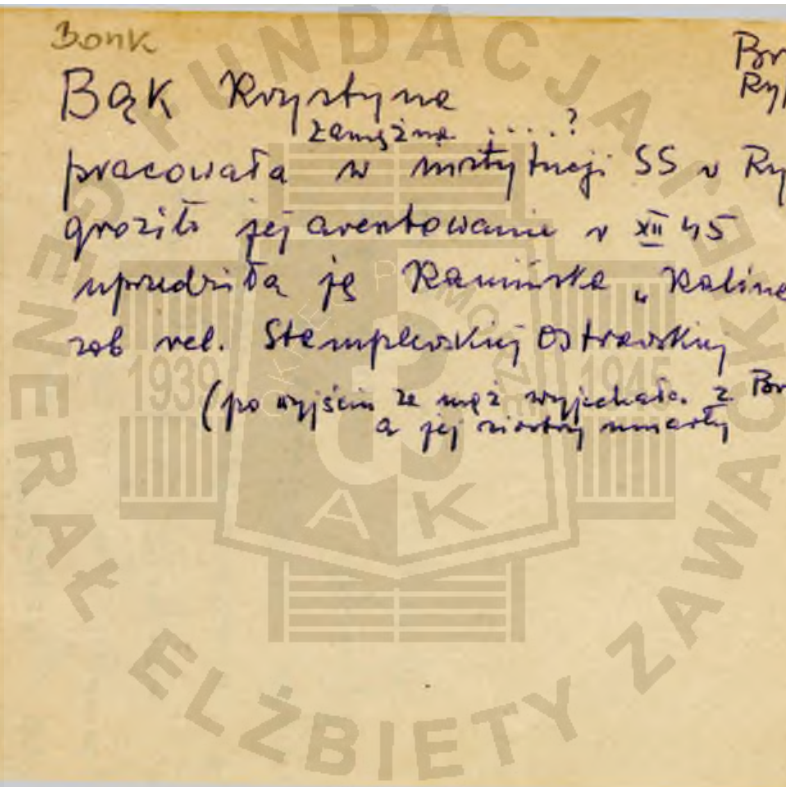 Bonk
Br
Ryp
BąK Krystyna
zamężna ....?
pracowała w instytucji SS w Ry
groziło jej aresztowanie w XII 45
uprzedziła ją Kamińska "Kalina
zob rel. Stemplewskiej Ostrowskiej
(po wyjściu za mąż wyjechała z Br
a jej siostry umarły
FUNDACJA
GENERAŁ ELŻBIETY ZAWAC
1939 1945
AK